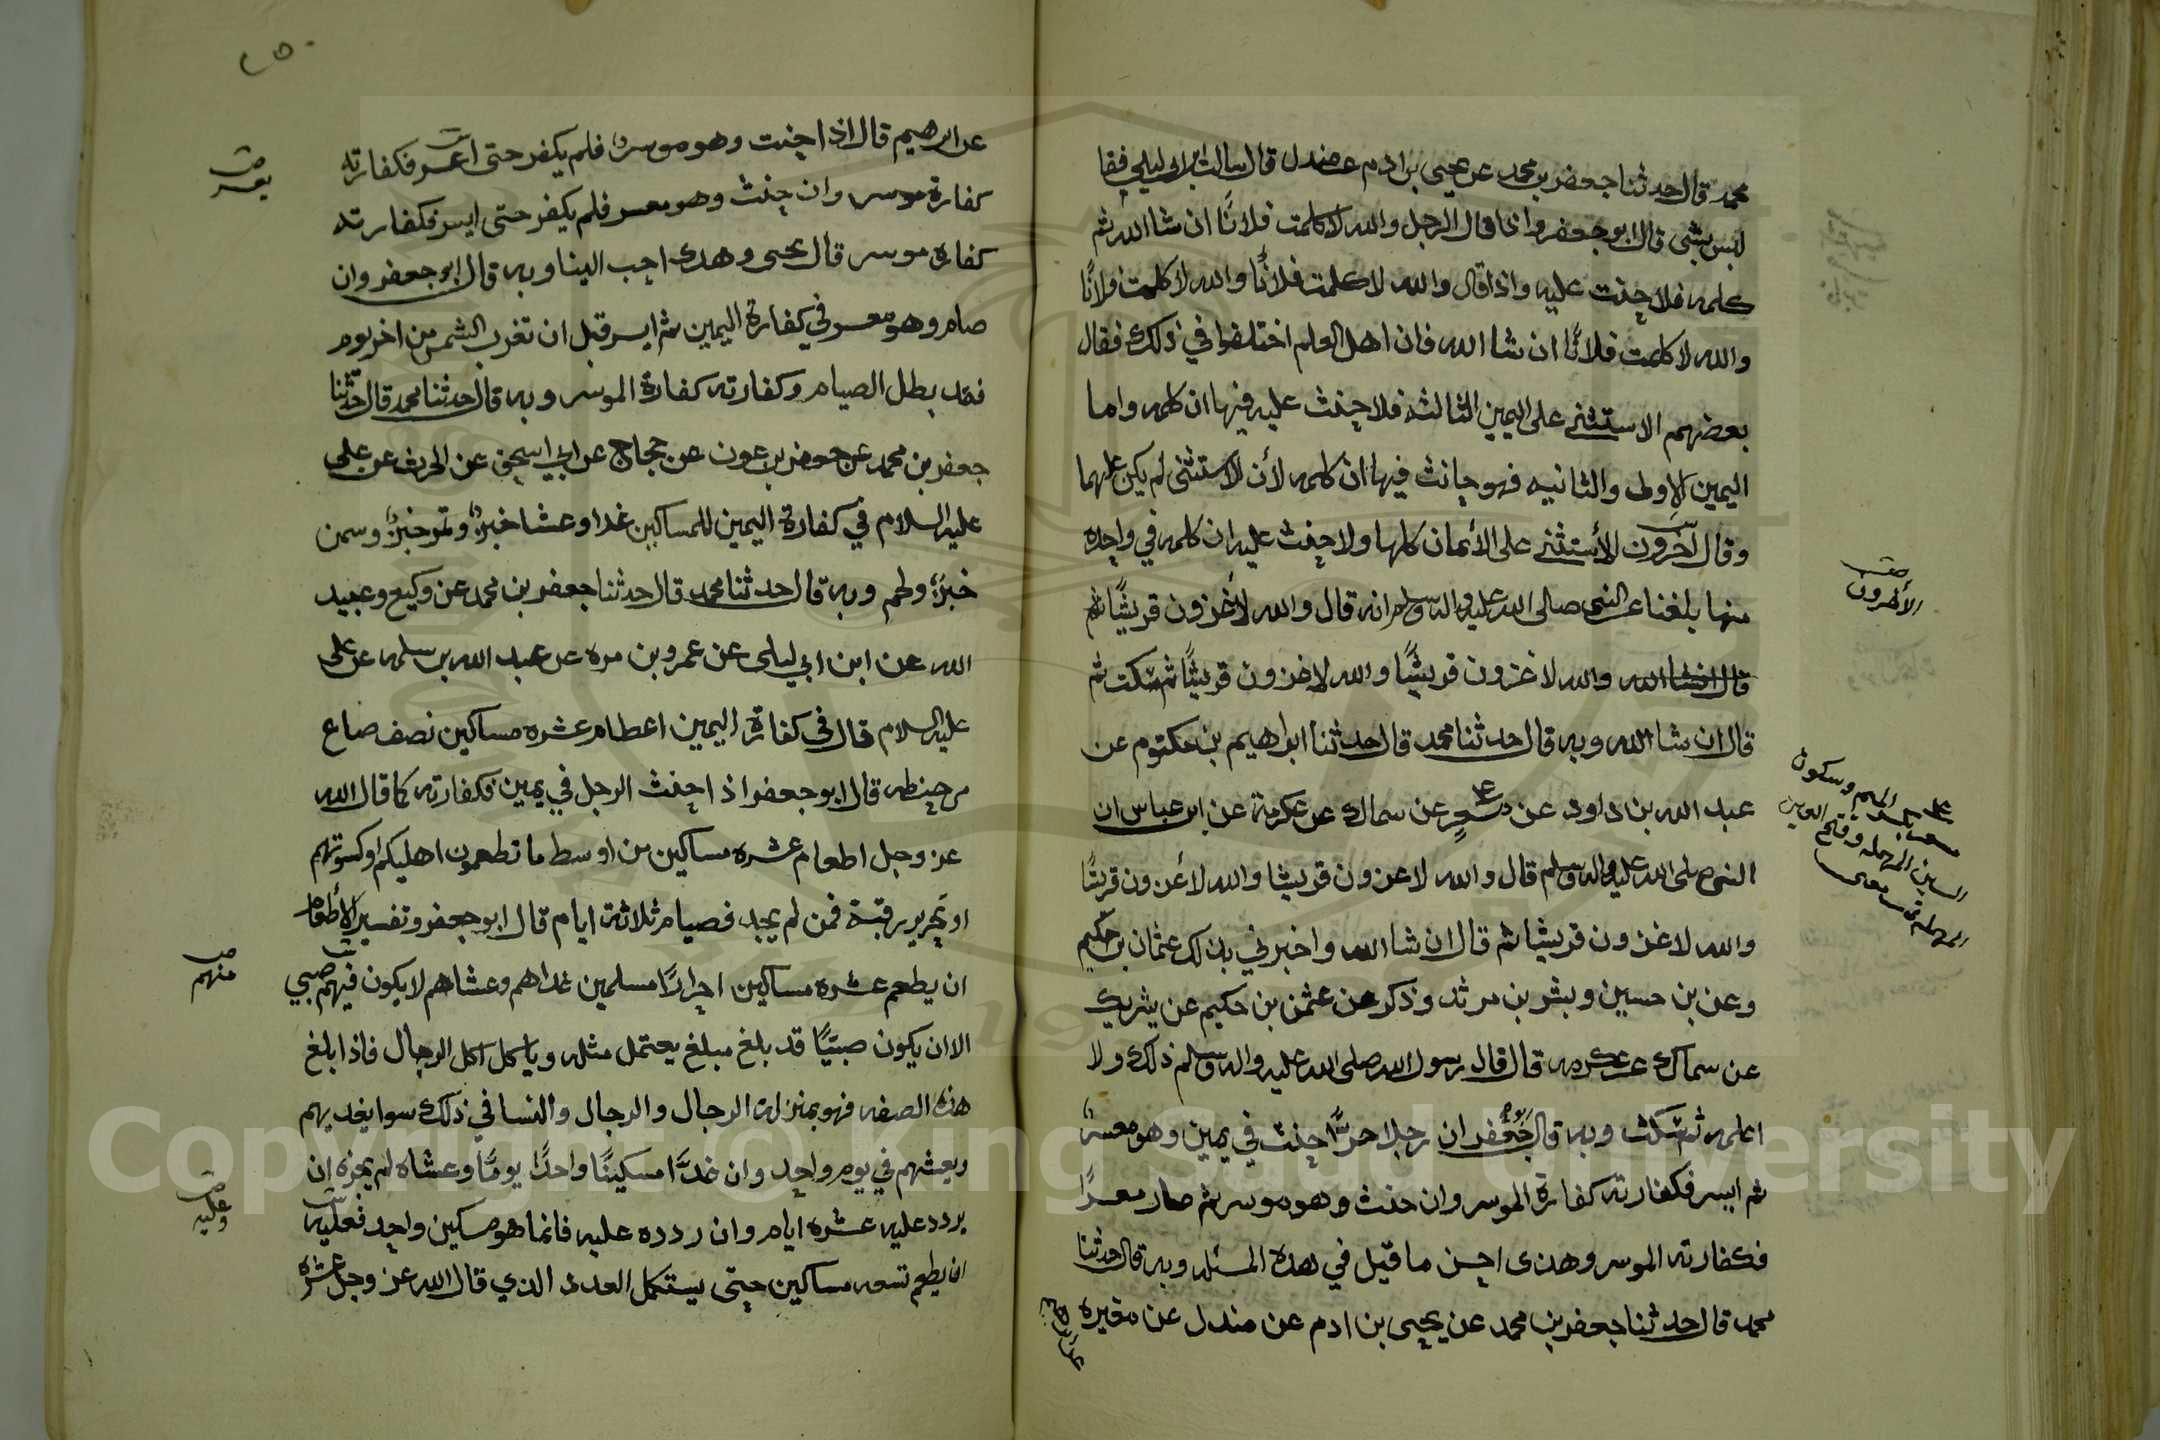 محمد قال حدثنا جعفر بن محمد عن يحيى بن ادم عن مندل قال سالت ابن ابي ليلى فقا
ليس بشى قال ابو جعفر واذا قال الرجل والله لا كلمت فلانًا ان شا الله ثم
كلمه فلا حنث عليه واذا قال والله لا كلمت فلانًا والله لا كلمت فلانًا
والله لا كلمت فلانًا ان شا الله فان اهل العلم اختلفوا في ذلك فقال
بعضهم الاستثنى على اليمين الثالثه فلا حنث عليه فيها ان كلمه واما
اليمين الاولى والثانيه فهو حانث فيها ان كلمه لأن الاستثنى لم يكن عليهما
وقال آخرون الأستثنى على الأيمان كلها ولا حنث عليه ان كلمه في واحده
منها بلغنا عن النبى صلى الله عليه واله وسلم انه قال والله لأغزون قريشًا ثم
قال ان شا الله والله لاغزون قريشًا والله لاغزون قريشًا ثم سكت ثم
قال ان شا الله وبه قال حدثنا محمد قال حدثنا ابراهيم بن مكتوم عن
عبد الله بن داود عن مسعر عن سماك عن عكرمة عن ابن عباس ان
النبى صلى الله عليه واله وسلم قال والله لاغزون قريشا والله لأغزون قريشًا
والله لاغزون قريشا ثم قال ان شا الله واخبرني بذلك عثمان بن حكيم
وعن بن حسين وبشر بن مرثد وذكر عن عثمن بن حكيم عن شريك
عن سماك عن عكرمه قال قال رسول الله صلى الله عليه واله وسلم ذلك ولا
اعلمه ثم سكت وبه قال جعفر ان رجلا حرًا حنث في يمين وهو معسر
ثم ايسر فكفارته كفارة الموسر وان حنث وهو موسر ثم صار معسرًا
فكفارته الموسر وهذى احسن ما قيل في هذة المسئله وبه قال حدثنا
محمد قال حدثنا جعفر بن محمد عن يحيى بن ادم عن مندل عن مغيره
عن ابرهيم
الأخرون
الميم وسكون
السين المهمله وفتح العين
المهمله
٢٥٠
عن ابرهيم قال اذا حنث وهو موسر فلم يكفر حتى اعسر فكفارته
كفارة موسر وان حنث وهو معسر فلم يكفر حتى ايسر فكفارته
كفارة موسر قال يحيى وهذى احب الينا وبه قال ابو جعفر وان
صام وهو معسر في كفارة اليمين ثم ايسر قبل ان تغرب الشمس من اخر يوم
فقد بطل الصيام وكفارته كفارة الموسر وبه قال حدثنا محمد قال حدثنا
جعفر بن محمد عن جعفر بن عون عن حجاج عن ابي اسحق عن الحرث عن على
عليه السلام في كفارة اليمين للمساكين غدا وعشا خبزٌ وتمر خبزٌ وسمن
خبزٌ ولحم وبه قال حدثنا محمد قال حدثنا جعفر بن محمد عن وكيع وعبيد
الله عن ابن ابي ليلى عن عمرو بن مره عن عبد الله بن سلمه عن على
عليه السلام قال في كفارة اليمين اعطام عشره مساكين نصف صاع
من حنطه قال ابو جعفر اذا حنث الرجل في يمين فكفارته كما قال الله
عز وجل اطعام عشره مساكين من اوسط ما تطعمون اهليكم او كسوتهم
او تحرير رقبة فمن لم يجد فصيام ثلاثة ايام قال ابو جعفر وتفسير الأطعام
ان يطعم عشره مساكين احرارًا مسلمين غداهم وعشاهم لا يكون فيهم صبي
الا ان يكون صبيًا قد بلغ مبلغ يحتمل مثله وياكل اكل الرجال فاذا بلغ
هذه الصفه فهو بمنزلة الرجال والرجال والنسا في ذلك سوا يغديهم
ويعشهم في يوم واحد وان غدَّا مسكينًا واحدًا يومًا وعشاه لم يجزه ان
يردد عليه عشره ايام وان ردده عليه فانما هو مسكين واحد فعليه
ان يطعم تسعه مساكين حتى يستكمل العدد الذي قال الله عز وجل عشره
يعسر
منهم
وعليه
Copyright © King Saud University